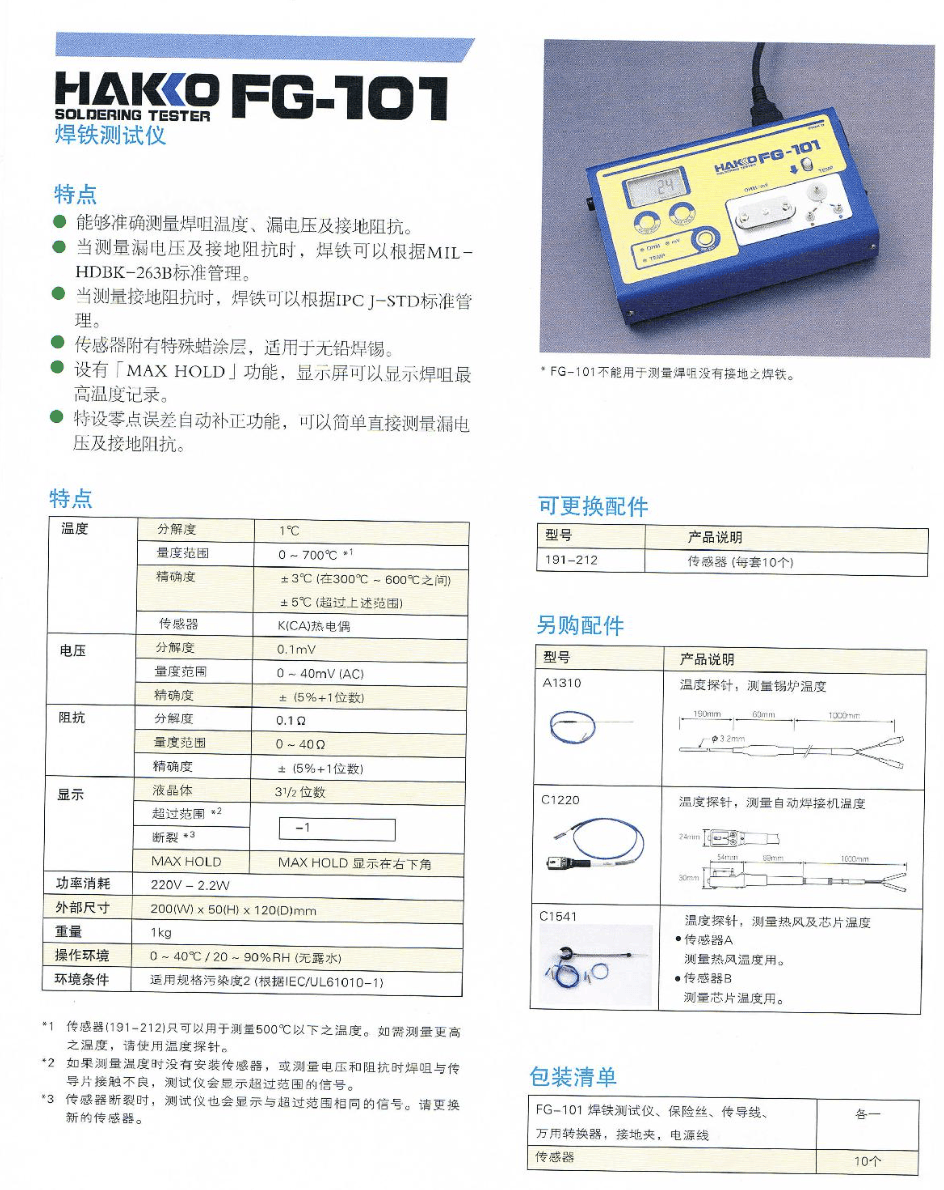 HAKKO FG-101
SOLDERING TESTER
焊铁测试仪
特点
● 能够准确测量焊咀温度、漏电压及接地阻抗。
● 当测量漏电压及接地阻抗时，焊铁可以根据MIL-
HDBK-263B标准管理。
● 当测量接地阻抗时，焊铁可以根据IPC J-STD标准管
理。
● 传感器附有特殊蜡涂层，适用于无铅焊锡。
● 设有「MAX HOLD」功能，显示屏可以显示焊咀最
高温度记录。
● 特设零点误差自动补正功能，可以简单直接测量漏电
压及接地阻抗。
特点
温度 分解度 1℃
量度范围 0 ~ 700℃ *1
精确度 ± 3℃ (在300℃ ~ 600℃之间)
± 5℃ (超过上述范围)
传感器 K(CA)热电偶
电压 分解度 0.1mV
量度范围 0 ~ 40mV (AC)
精确度 ± (5%+1位数)
阻抗 分解度 0.1Ω
量度范围 0 ~ 40Ω
精确度 ± (5%+1位数)
显示 液晶体 3 1/2 位数
超过范围 *2
-1
断裂 *3
MAX HOLD MAX HOLD 显示在右下角
功率消耗 220V – 2.2W
外部尺寸 200(W) x 50(H) x 120(D)mm
重量 1kg
操作环境 0 ~ 40℃ / 20 ~ 90%RH (无露水)
环境条件 适用规格污染度2 (根据IEC/UL61010-1)
*1 传感器(191-212)只可以用于测量500℃以下之温度。如需测量更高
之温度，请使用温度探针。
*2 如果测量温度时没有安装传感器，或测量电压和阻抗时焊咀与传
导片接触不良，测试仪会显示超过范围的信号。
*3 传感器断裂时，测试仪也会显示与超过范围相同的信号。请更换
新的传感器。
HAKKO FG-101
24
OHMS/mV
TEMP
OHMS mV
TEMP
* FG-101不能用于测量焊咀没有接地之焊铁。
可更换配件
型号 产品说明
191-212 传感器 (每套10个)
另购配件
型号 产品说明
A1310 温度探针，测量锡炉温度
190mm 60mm 1000mm
φ3.2mm
C1220 温度探针，测量自动焊接机温度
24mm
54mm 99mm 1000mm
30mm
C1541 温度探针，测量热风及芯片温度
● 传感器A
测量热风温度用。
● 传感器B
测量芯片温度用。
包装清单
FG-101 焊铁测试仪、保险丝、传导线、 各一
万用转换器，接地夹，电源线
传感器 10个